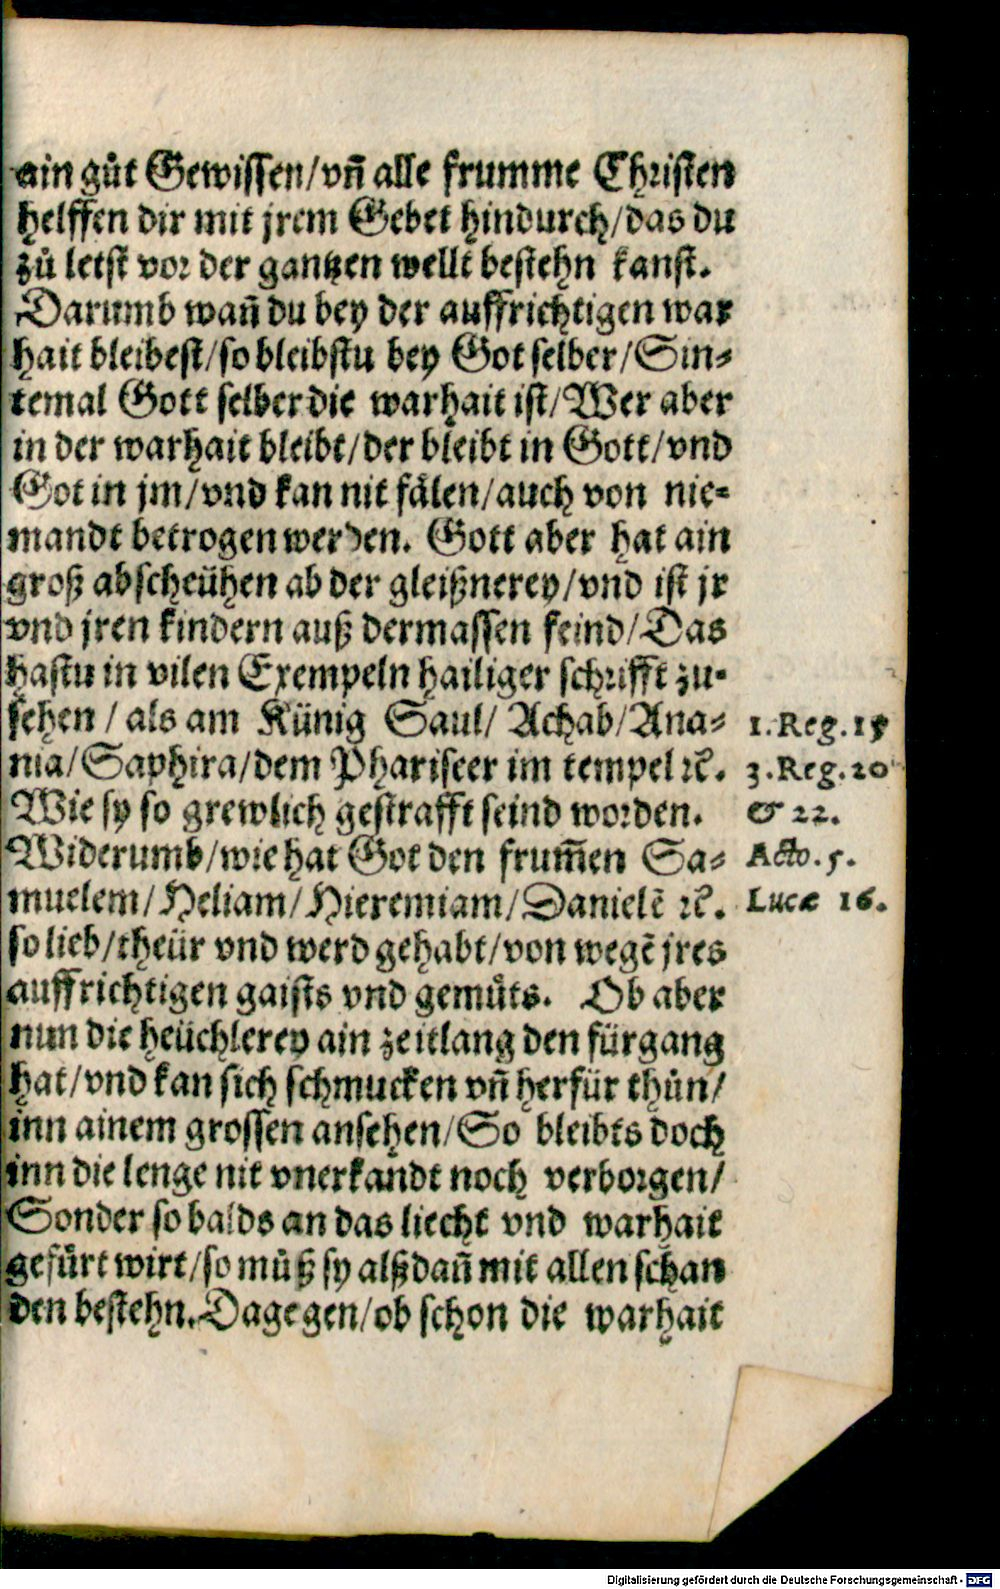 ain gůt Gewissen/vñ alle frumme Christen
helffen dir mit jrem Gebet hindurch/das du
zů letst vor der gantzen wellt bestehn kanst.
Darumb wañ du bey der auffrichtigen war
hait bleibest/so bleibstu bey Got selber/Sin⸗
temal Gott selber die warhait ist/Wer aber
in der warhait bleibt/der bleibt in Gott/vnd
Got in jm/vnd kan nit fälen/auch von nie⸗
mandt betrogen werden. Gott aber hat ain
groß abscheühen ab der gleißnerey/vnd ist jr
vnd jren kindern auß dermassen feind/Das
hastu in vilen Exempeln hailiger schrifft zu⸗
sehen / als am Künig Saul/ Achab/Ana⸗ 1. Reg. 15
nia/Saphira/dem Phariseer im tempel ꝛc. 3. Reg. 20
Wie sy so grewlich gestrafft seind worden. & 22.
Widerumb/wie hat Got den frum̃en Sa⸗ Acto. 5.
muelem/Heliam/Hieremiam/Danielẽ ꝛc. Lucæ 16.
so lieb/theür vnd werd gehabt/von wegẽ jres
auffrichtigen gaists vnd gemůts. Ob aber
nun die heüchlerey ain zeitlang den fürgang
hat/vnd kan sich schmucken vñ herfür thůn/
inn ainem grossen ansehen/So bleibts doch
inn die lenge nit vnerkandt noch verborgen/
Sonder so balds an das liecht vnd warhait
gefürt wirt/so můß sy alßdañ mit allen schan
den bestehn. Dagegen/ob schon die warhait
Digitalisierung gefördert durch die Deutsche Forschungsgemeinschaft - DFG